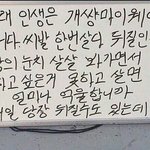 래 인생은 개상마이웨이
니다. 씨발 한번살다 뒤질인
의 눈치 살살 봐가면서
하고 싶은거 못하고 살면
얼마나 억울합니까
내일 당장 뒤질수도 있는데